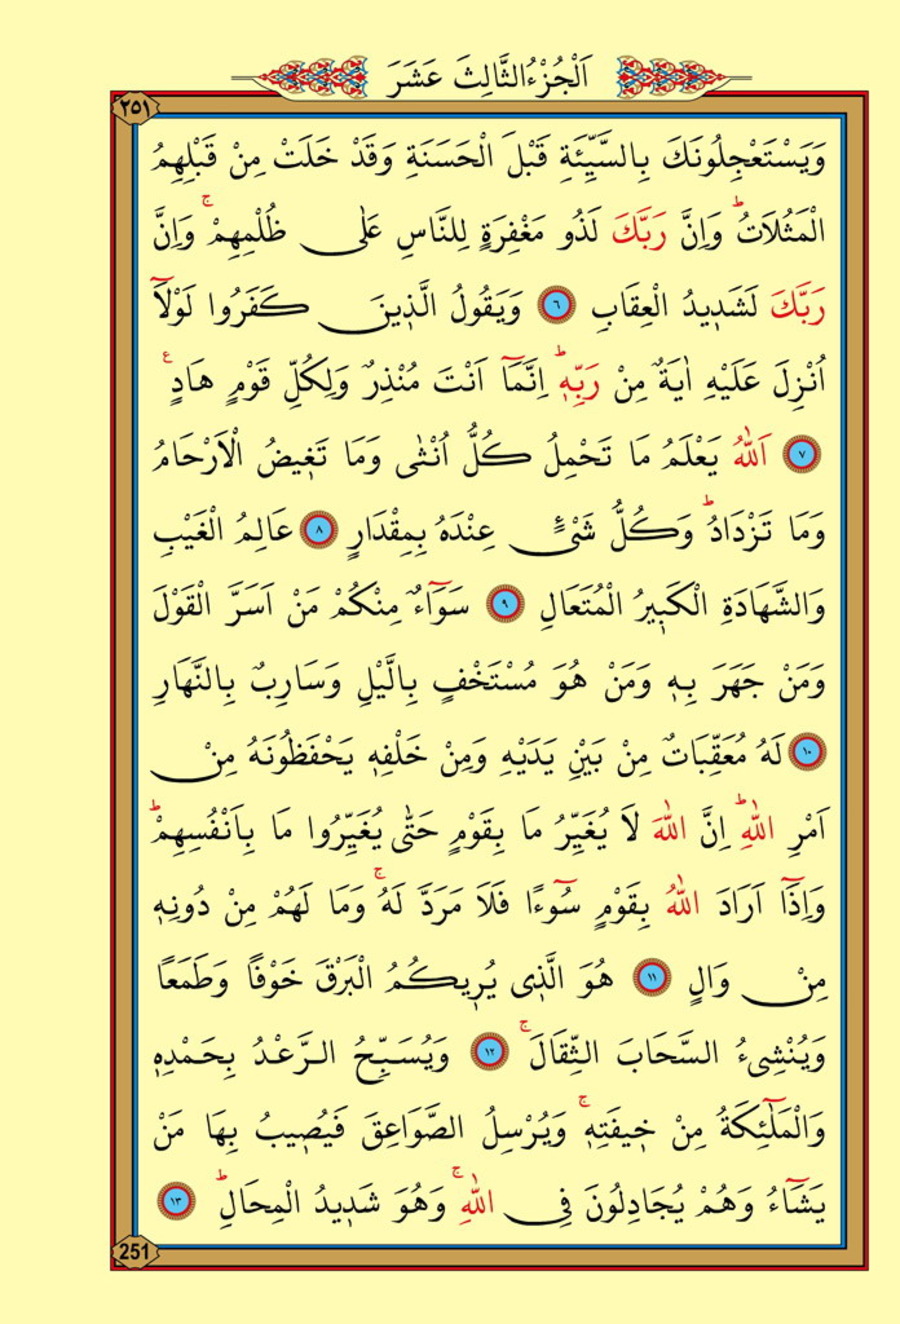 اَلْجُزْءُ الثَّالِثَ عَشَرَ
٢٥١
وَيَسْتَعْجِلُونَكَ بِالسَّيِّئَةِ قَبْلَ الْحَسَنَةِ وَقَدْ خَلَتْ مِنْ قَبْلِهِمُ
الْمَثُلَاتُۜ وَاِنَّ رَبَّكَ لَذُو مَغْفِرَةٍ لِلنَّاسِ عَلٰى ظُلْمِهِمْۚ وَاِنَّ
رَبَّكَ لَشَد۪يدُ الْعِقَابِ ٦ وَيَقُولُ الَّذ۪ينَ كَفَرُوا لَوْلَٓا
اُنْزِلَ عَلَيْهِ اٰيَةٌ مِنْ رَبِّه۪ۜ اِنَّمَٓا اَنْتَ مُنْذِرٌ وَلِكُلِّ قَوْمٍ هَادٍ۟
٧ اَللّٰهُ يَعْلَمُ مَا تَحْمِلُ كُلُّ اُنْثٰى وَمَا تَغ۪يضُ الْاَرْحَامُ
وَمَا تَزْدَادُۜ وَكُلُّ شَيْءٍ عِنْدَهُ بِمِقْدَارٍ ٨ عَالِمُ الْغَيْبِ
وَالشَّهَادَةِ الْكَب۪يرُ الْمُتَعَالِ ٩ سَوَٓاءٌ مِنْكُمْ مَنْ اَسَرَّ الْقَوْلَ
وَمَنْ جَهَرَ بِه۪ وَمَنْ هُوَ مُسْتَخْفٍ بِالَّيْلِ وَسَارِبٌ بِالنَّهَارِ
١٠ لَهُ مُعَقِّبَاتٌ مِنْ بَيْنِ يَدَيْهِ وَمِنْ خَلْفِه۪ يَحْفَظُونَهُ مِنْ
اَمْرِ اللّٰهِۜ اِنَّ اللّٰهَ لَا يُغَيِّرُ مَا بِقَوْمٍ حَتّٰى يُغَيِّرُوا مَا بِاَنْفُسِهِمْۜ
وَاِذَٓا اَرَادَ اللّٰهُ بِقَوْمٍ سُٓوءًا فَلَا مَرَدَّ لَهُۚ وَمَا لَهُمْ مِنْ دُونِه۪
مِنْ وَالٍ ١١ هُوَ الَّذ۪ي يُر۪يكُمُ الْبَرْقَ خَوْفًا وَطَمَعًا
وَيُنْشِئُ السَّحَابَ الثِّقَالَۚ ١٢ وَيُسَبِّحُ الرَّعْدُ بِحَمْدِه۪
وَالْمَلٰٓئِكَةُ مِنْ خ۪يفَتِه۪ۚ وَيُرْسِلُ الصَّوَاعِقَ فَيُص۪يبُ بِهَا مَنْ
يَشَٓاءُ وَهُمْ يُجَادِلُونَ فِي اللّٰهِۚ وَهُوَ شَد۪يدُ الْمِحَالِۜ ١٣
251